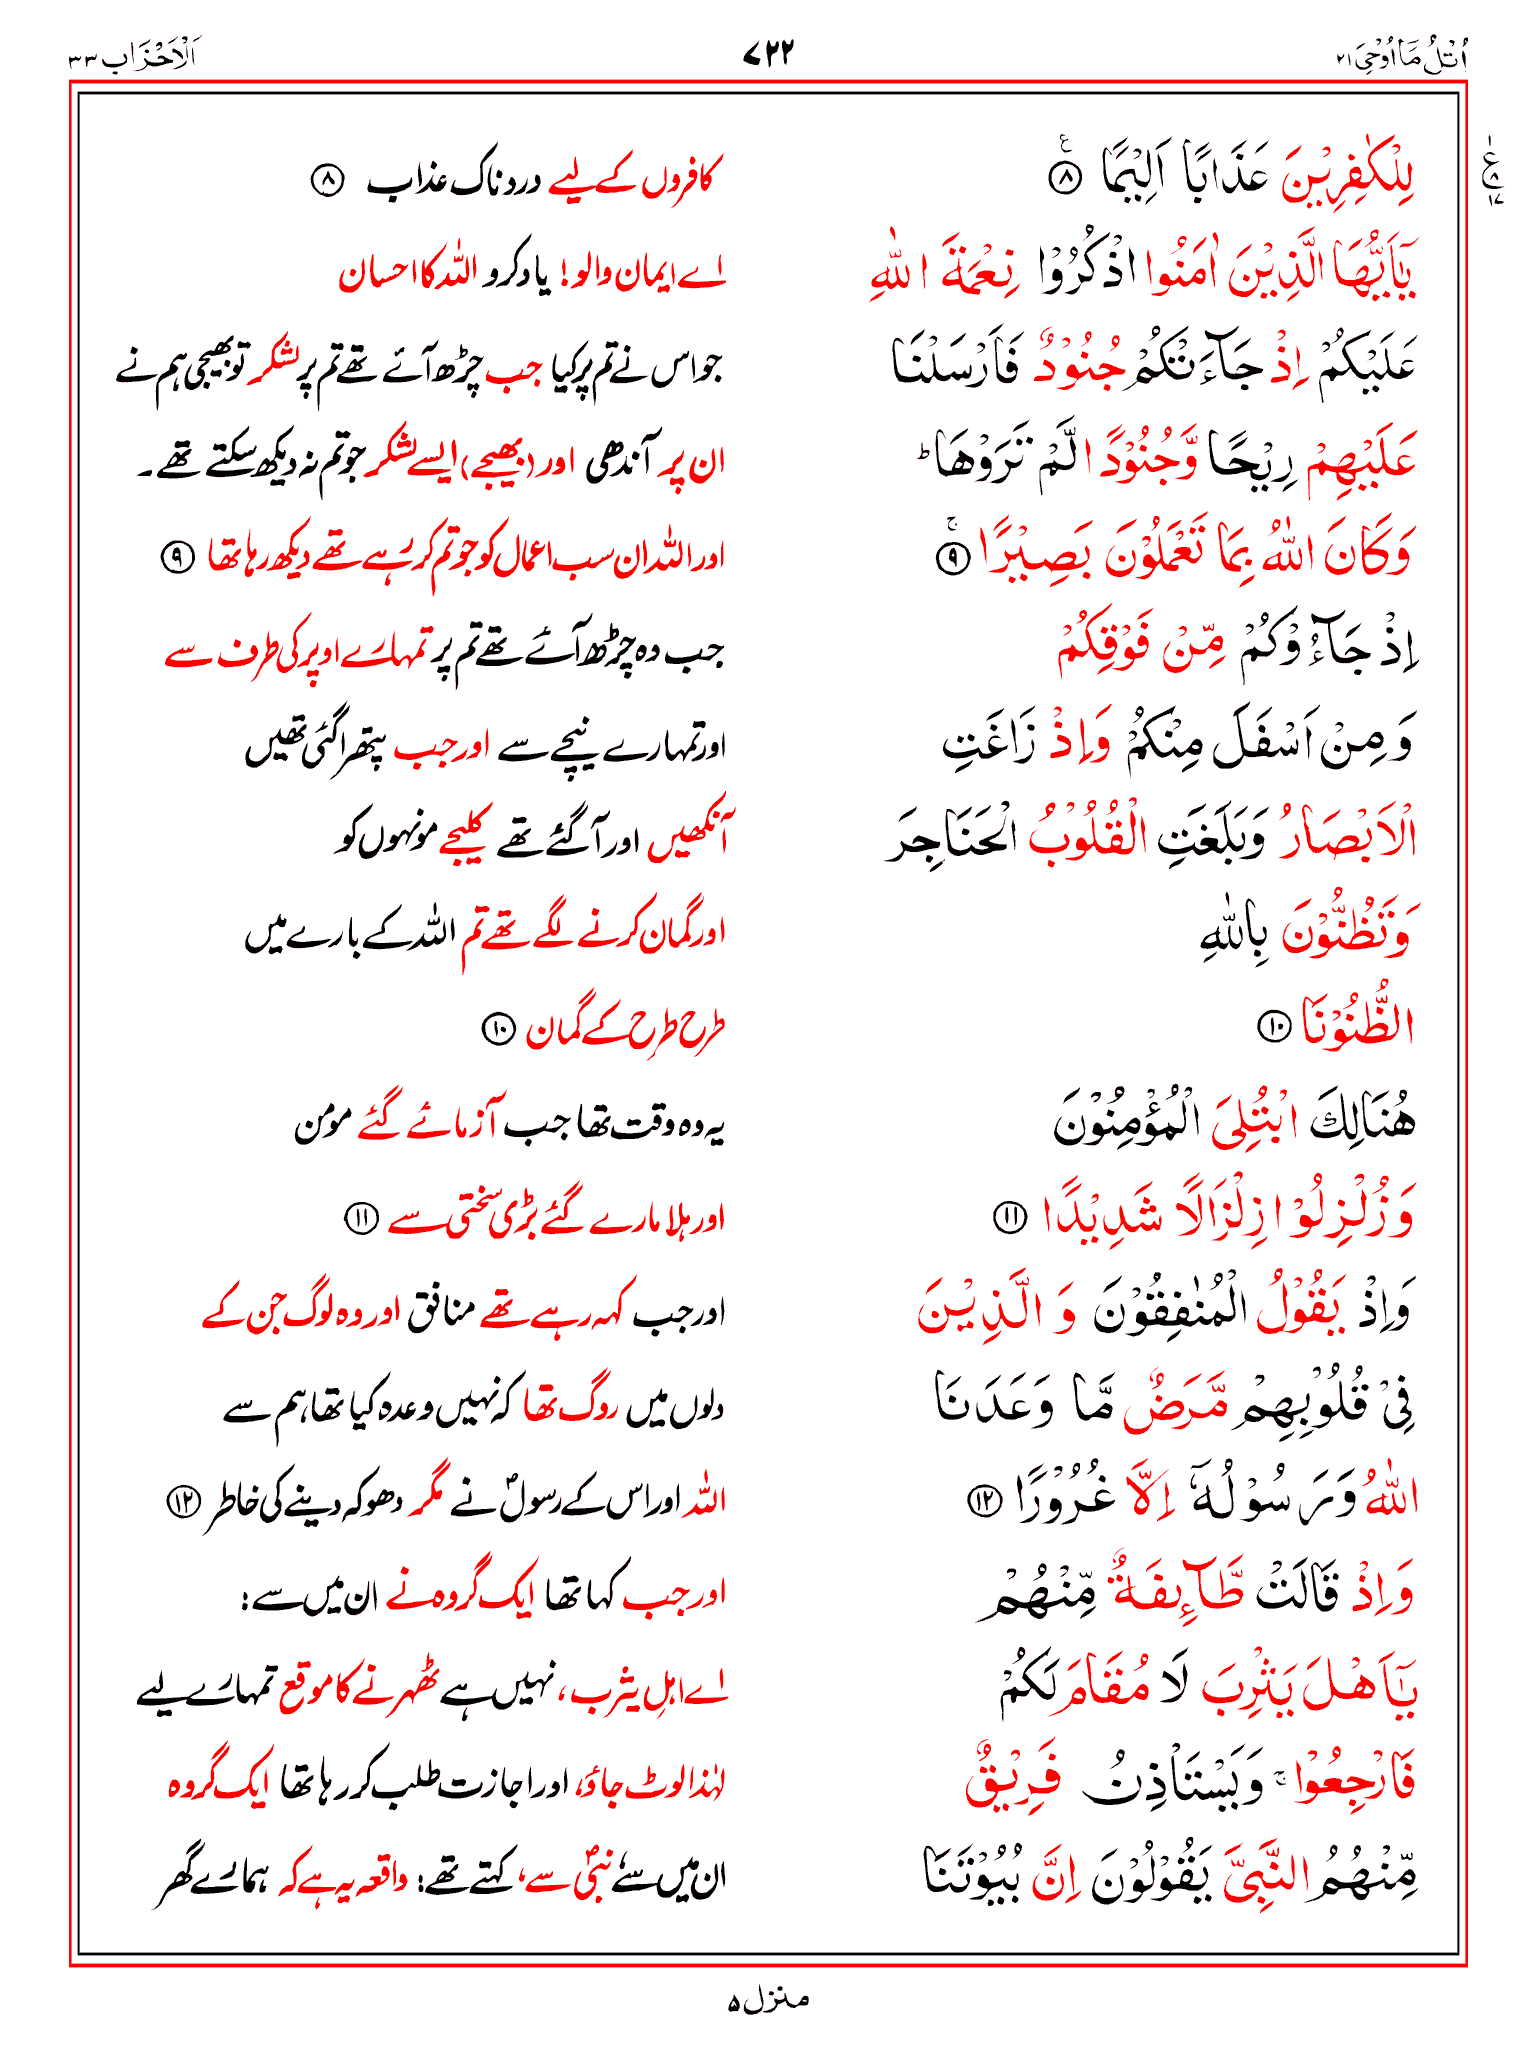 اُتْلُ مَآ اُوْحِیَ ۲۱
۷۲۲
اَلْاَحْزَاب ۳۳
لِلْكٰفِرِیْنَ عَذَابًا اَلِیْمًا ۸
کافروں کے لیے دردناک عذاب ۸
یٰۤاَیُّهَا الَّذِیْنَ اٰمَنُوا اذْكُرُوْا نِعْمَةَ اللّٰهِ
اے ایمان والو! یاد کرو اللہ کا احسان
عَلَیْكُمْ اِذْ جَآءَتْكُمْ جُنُوْدٌ فَاَرْسَلْنَا
جو اس نے تم پر کیا جب چڑھ آئے تھے تم پر لشکر تو بھیجی ہم نے
عَلَیْهِمْ رِیْحًا وَّ جُنُوْدًا لَّمْ تَرَوْهَا ؕ
ان پر آندھی اور (بھیجے) ایسے لشکر جو تم نہ دیکھ سکتے تھے۔
وَ كَانَ اللّٰهُ بِمَا تَعْمَلُوْنَ بَصِیْرًا ۹
اور اللہ ان سب اعمال کو جو تم کر رہے تھے دیکھ رہا تھا ۹
اِذْ جَآءُوْكُمْ مِّنْ فَوْقِكُمْ
جب وہ چڑھ آئے تھے تم پر تمہارے اوپر کی طرف سے
وَ مِنْ اَسْفَلَ مِنْكُمْ وَ اِذْ زَاغَتِ
اور تمہارے نیچے سے اور جب پتھرا گئی تھیں
الْاَبْصَارُ وَ بَلَغَتِ الْقُلُوْبُ الْحَنَاجِرَ
آنکھیں اور آ گئے تھے کلیجے مونہوں کو
وَ تَظُنُّوْنَ بِاللّٰهِ
اور گمان کرنے لگے تھے تم اللہ کے بارے میں
الظُّنُوْنَا ۱۰
طرح طرح کے گمان ۱۰
هُنَالِكَ ابْتُلِیَ الْمُؤْمِنُوْنَ
یہ وہ وقت تھا جب آزمائے گئے مومن
وَ زُلْزِلُوْا زِلْزَالًا شَدِیْدًا ۱۱
اور ہلا مارے گئے بڑی سختی سے ۱۱
وَ اِذْ یَقُوْلُ الْمُنٰفِقُوْنَ وَ الَّذِیْنَ
اور جب کہہ رہے تھے منافق اور وہ لوگ جن کے
فِیْ قُلُوْبِهِمْ مَّرَضٌ مَّا وَعَدَنَا
دلوں میں روگ تھا کہ نہیں وعدہ کیا تھا ہم سے
اللّٰهُ وَ رَسُوْلُهٗۤ اِلَّا غُرُوْرًا ۱۲
اللہ اور اس کے رسولؐ نے مگر دھوکہ دینے کی خاطر ۱۲
وَ اِذْ قَالَتْ طَّآىِٕفَةٌ مِّنْهُمْ
اور جب کہا تھا ایک گروہ نے ان میں سے:
یٰۤاَهْلَ یَثْرِبَ لَا مُقَامَ لَكُمْ
اے اہلِ یثرب، نہیں ہے ٹھہرنے کا موقع تمہارے لیے
فَارْجِعُوْا ۚ وَ یَسْتَاْذِنُ فَرِیْقٌ
لہٰذا لوٹ جاؤ، اور اجازت طلب کر رہا تھا ایک گروہ
مِّنْهُمُ النَّبِیَّ یَقُوْلُوْنَ اِنَّ بُیُوْتَنَا
ان میں سے، نبیؐ سے، کہتے تھے: واقعہ یہ ہے کہ ہمارے گھر
منزل ۵